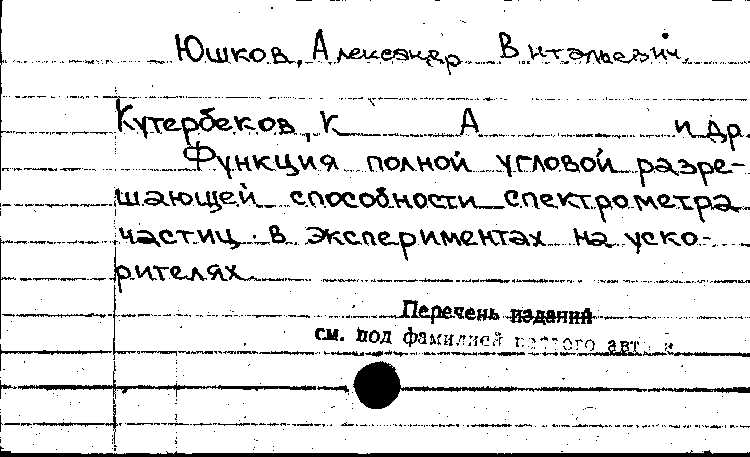 Юшков, Александр Витальевич.
Кутербеков, К А и др.
Функция полной угловой разре-
шающей способности спектрометра
частиц в экспериментах на уско-
рителях.
Перечень изданий
см. под фамилией первого авт